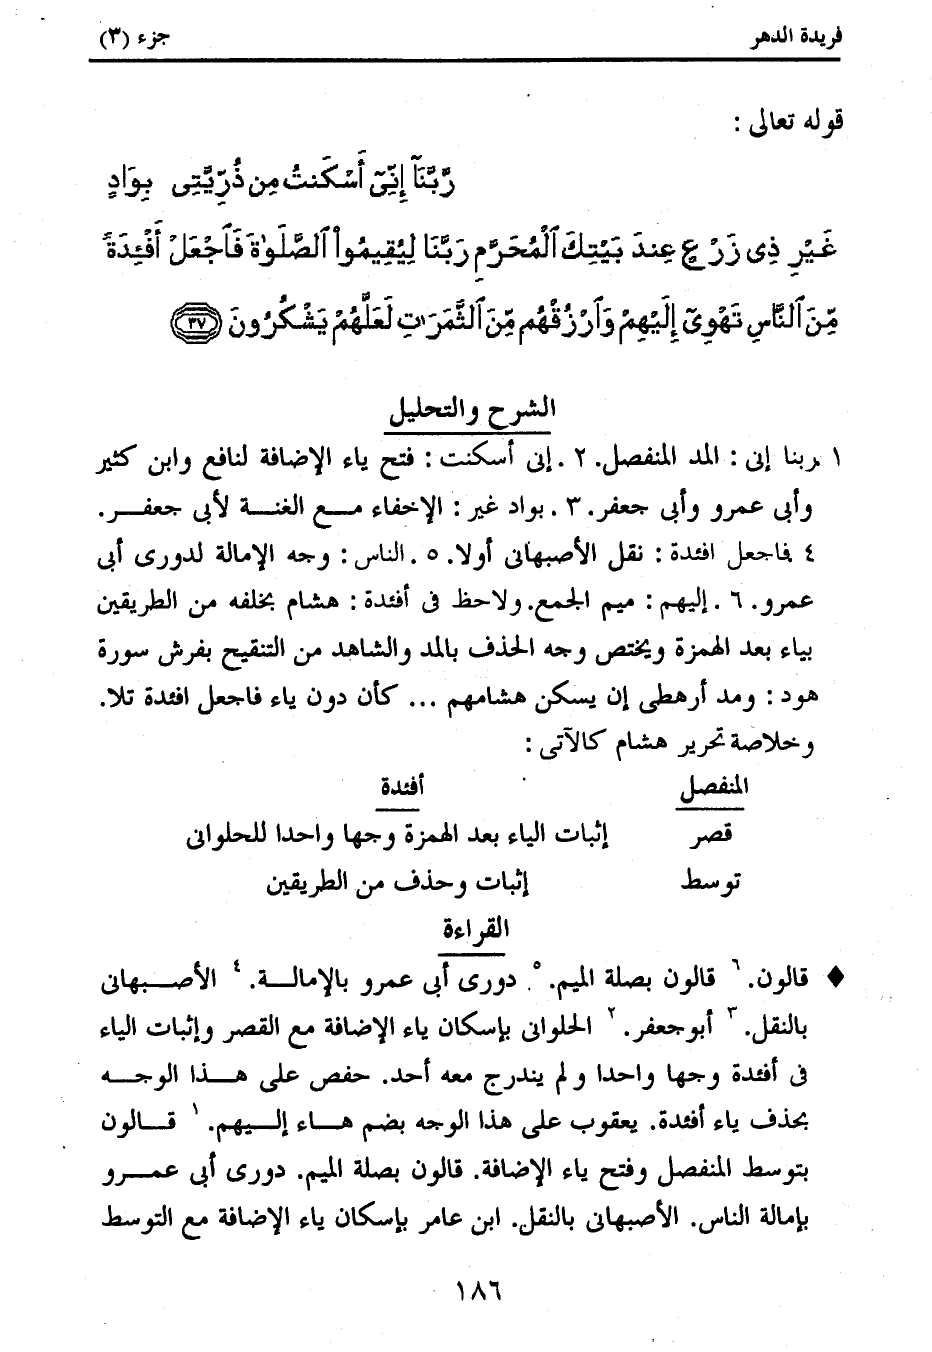 فريدة الدهر جزء (٣)
قوله تعالى :
رَّبَّنَآ إِنِّىٓ أَسْكَنتُ مِن ذُرِّيَّتِى بِوَادٍ
غَيْرِ ذِى زَرْعٍ عِندَ بَيْتِكَ ٱلْمُحَرَّمِ رَبَّنَا لِيُقِيمُوا۟ ٱلصَّلَوٰةَ فَٱجْعَلْ أَفْـِٔدَةً
مِّنَ ٱلنَّاسِ تَهْوِىٓ إِلَيْهِمْ وَٱرْزُقْهُم مِّنَ ٱلثَّمَرَٰتِ لَعَلَّهُمْ يَشْكُرُونَ ٣٧
الشرح والتحليل
١ .ربنا إنى : المد المنفصل. ٢ .إنى أسكنت : فتح ياء الإضافة لنافع وابن كثير
وأبى عمرو وأبى جعفر. ٣ .بواد غير : الإخفاء مع الغنة لأبى جعفر.
٤ .فاجعل افئدة : نقل الأصبهانى أولا. ٥ .الناس : وجه الإمالة لدورى أبى
عمرو. ٦ .إليهم : ميم الجمع. ولاحظ فى أفئدة : هشام بخلفه من الطريقين
بياء بعد الهمزة ويختص وجه الحذف بالمد والشاهد من التنقيح بفرش سورة
هود : ومد أرهطى إن يسكن هشامهم ... كأن دون ياء فاجعل افئدة تلا.
وخلاصة تحرير هشام كالآتى :
المنفصل أفئدة
قصر إثبات الياء بعد الهمزة وجها واحدا للحلوانى
توسط إثبات وحذف من الطريقين
القراءة
♦ قالون. ٦ قالون بصلة الميم. ٥ دورى أبى عمرو بالإمالة. ٤ الأصبهانى
بالنقل. ٣ أبو جعفر. ٢ الحلوانى بإسكان ياء الإضافة مع القصر وإثبات الياء
فى أفئدة وجها واحدا ولم يندرج معه أحد. حفص على هذا الوجه
بحذف ياء أفئدة. يعقوب على هذا الوجه بضم هاء إليهم. ١ قالون
بتوسط المنفصل وفتح ياء الإضافة. قالون بصلة الميم. دورى أبى عمرو
بإمالة الناس. الأصبهانى بالنقل. ابن عامر بإسكان ياء الإضافة مع التوسط
١٨٦